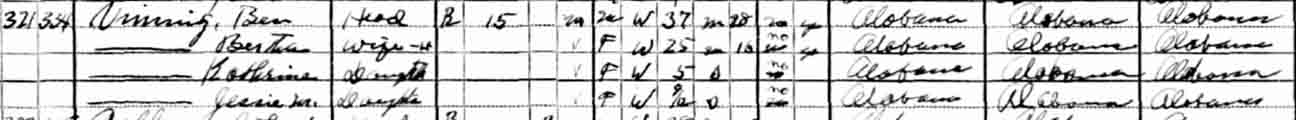 321 334 Vinning, Ben Head R 15 M W 37 M 28 no yes Alabama Alabama Alabama
Bertha Wife-H F W 25 M 16 no yes Alabama Alabama Alabama
Katherine Daughte F W 5 S no Alabama Alabama Alabama
Jessie M. Daughte F W S no Alabama Alabama Alabama